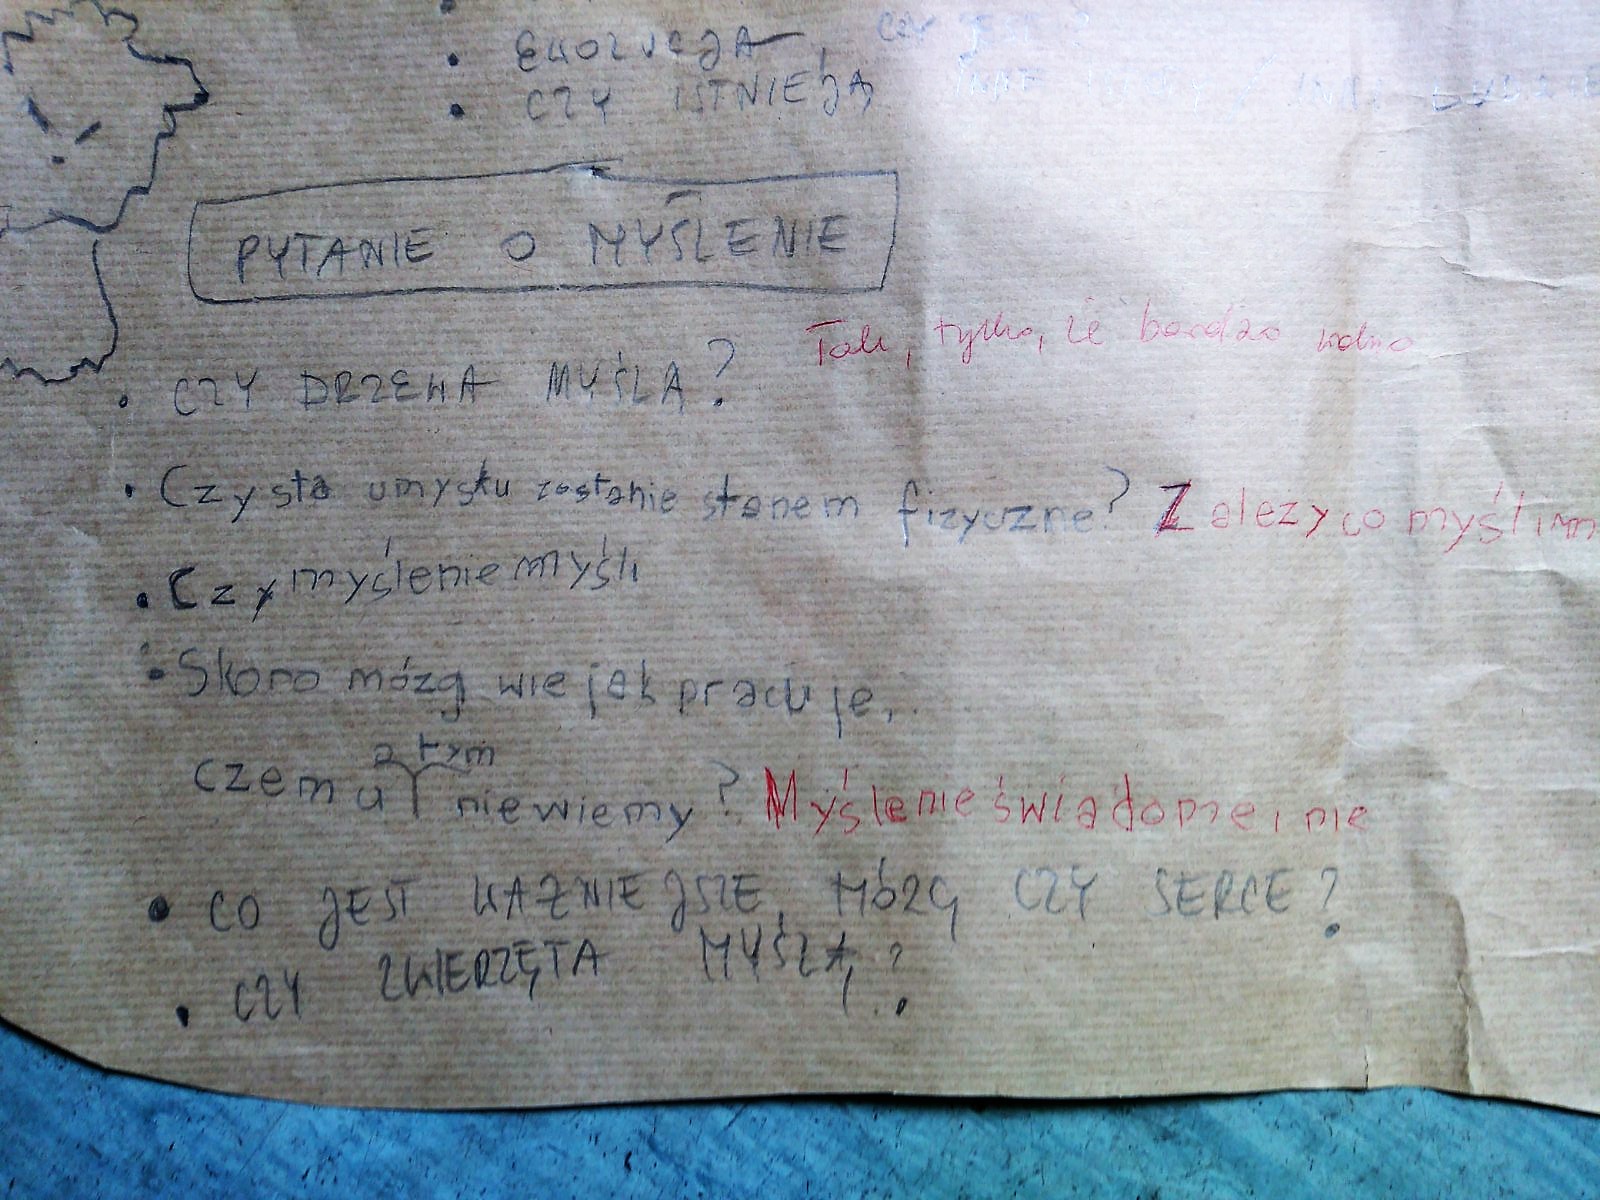 EWOLUCJA, czy jest?
CZY ISTNIEJĄ
PYTANIE O MYŚLENIE
CZY DRZEWA MYŚLĄ? Tak, tylko, że bardzo wolno
Czysta umysłu zostanie stanem fizyczne? Zależy co myślim
Czy myślenie myśli
Skoro mózg wie jak pracuje,
czemu a tym nie wiemy? Myślenie świadome i nie
CO JEST WAŻNIEJSZE, MÓZG CZY SERCE?
CZY ZWIERZĘTA MYŚLĄ?